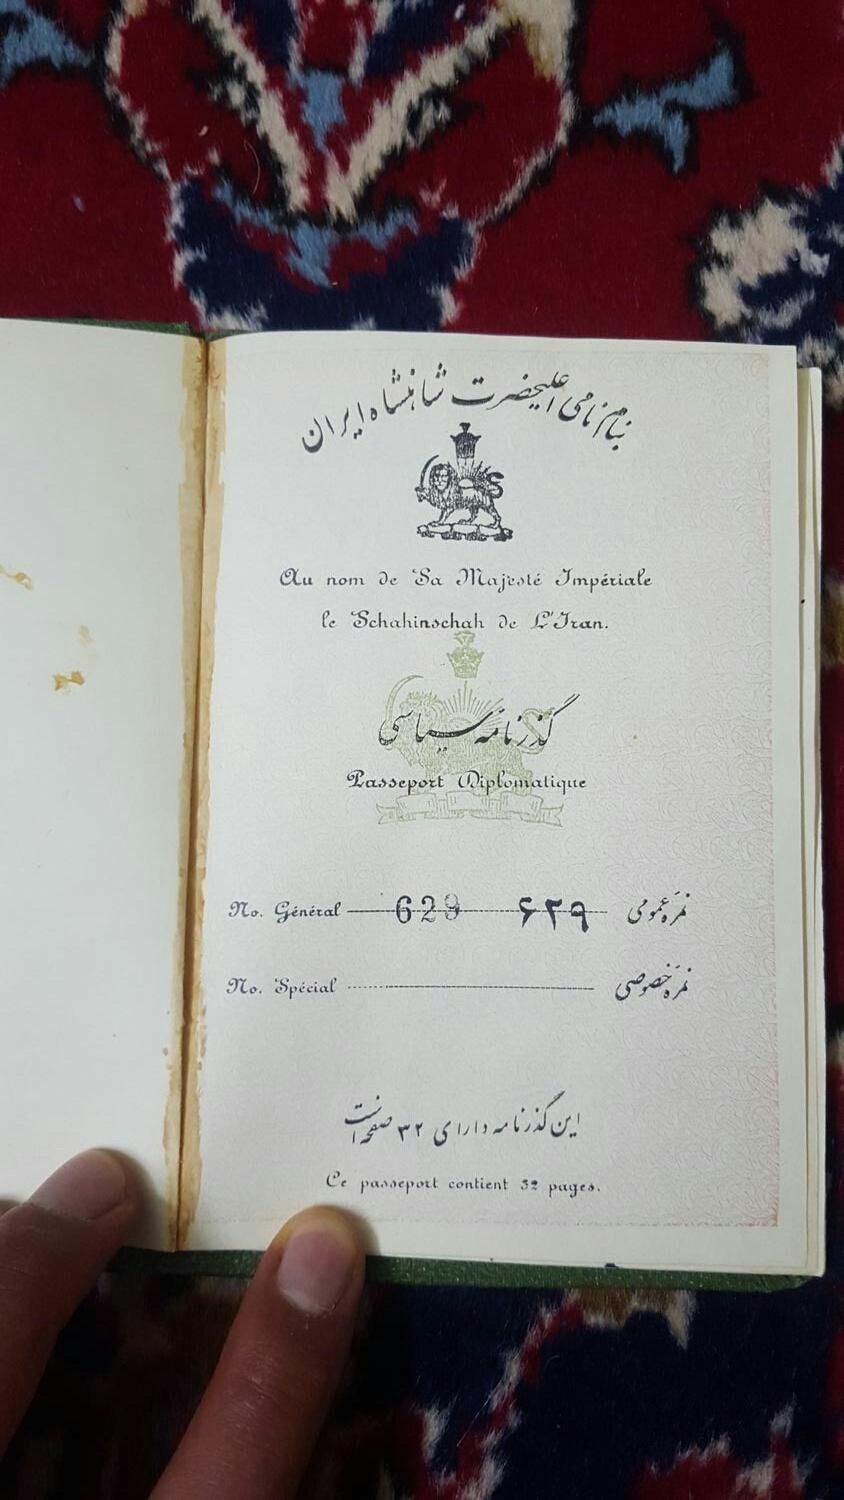 بنام نامی اعلیحضرت شاهنشاه ایران
Au nom de Sa Majesté Impériale
le Schahinschah de L'Iran.
گذرنامه سیاسی
Passeport Diplomatique
No. Général 629 ۶۲۹ نمره عمومی
No. Spécial نمره خصوصی
این گذرنامه دارای ۳۲ صفحه است
Ce passeport contient 32 pages.